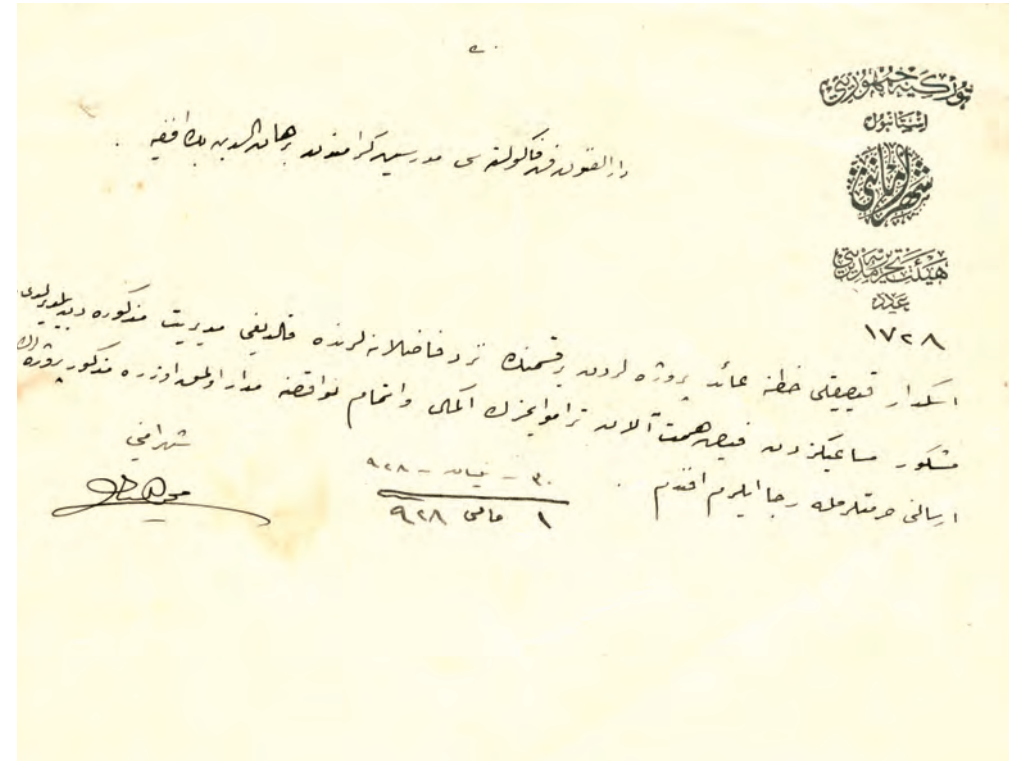 توركيه جمهوريتى
استانبول
شهر امانتى
هيئت تحريريه مديريتى
عدد
١٧٢٨
دار الفنون فن فاكولته سى مدرسين كرامندن برهان الدين بك افندى يه
اسكدار قيصيقلى خطنه عائد پروژه لردن بر قسمنك نزد فاضلانه لرنده قالديغى مديريت مذكوره دن بيلديرلدى
مشكور مساعيكزدن فيض همت آلان تراموايمزك اكمال واتمام نواقصنه مدار اولمق اوزره مذكور پروژه لرك
ارسالنى حرمتلرمله رجا ايلرم افندم .
٣٠ - نيسان - ٩٢٨
١ مايس ٩٢٨
شهر امينى
محى الدين